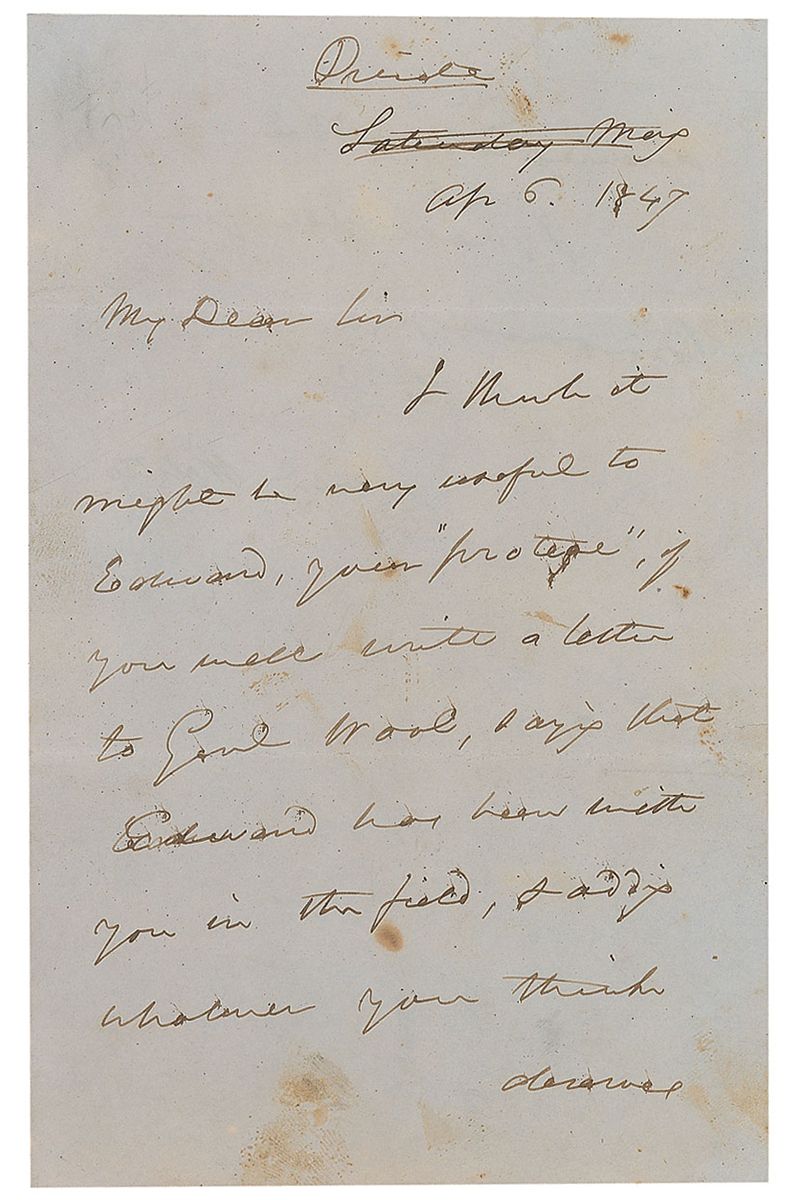 Private
Saturday Mng
Ap 6. 1847
My Dear Sir
I think it
might be very useful to
Edward, your "protege", if
you will write a letter
to Genl Wool, sayg that
Edward has been with
you in the field, & addg
whatever you think
deserves